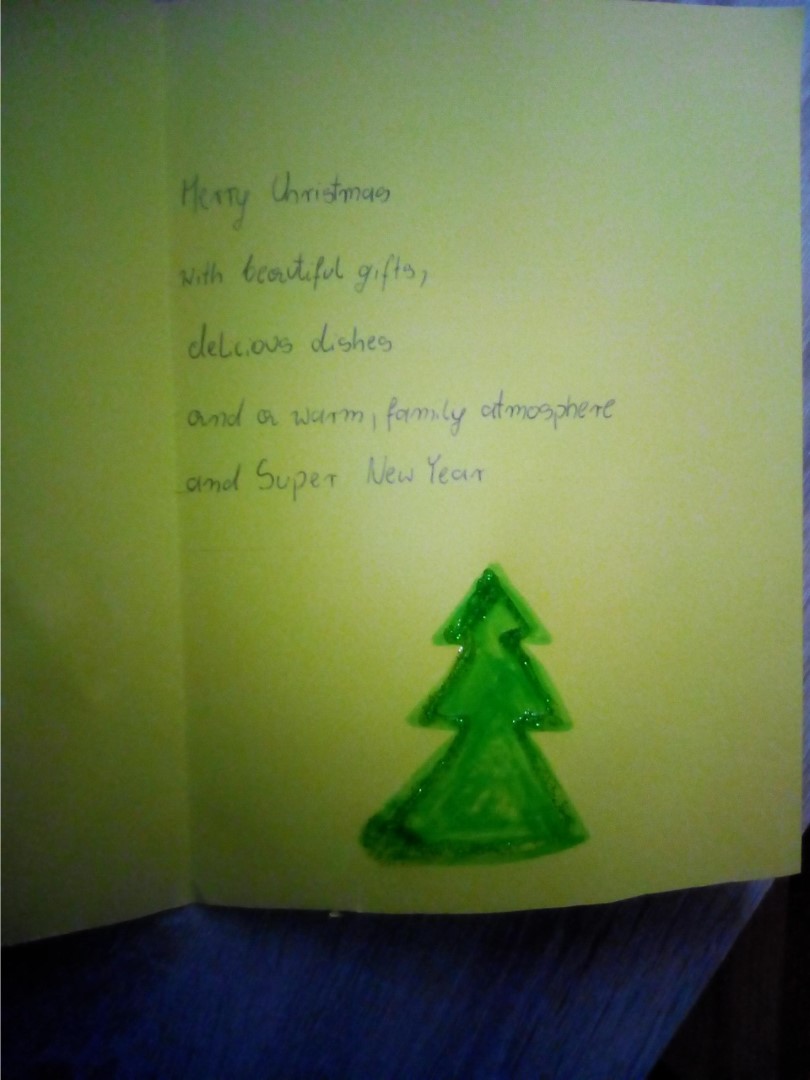 Merry Christmas
with beautiful gifts,
delicious dishes
and a warm, family atmosphere
and Super New Year